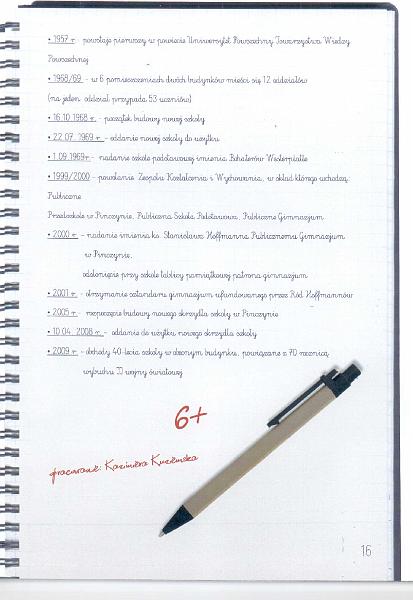 • 1957 r. - powstaje pierwszy w powiecie Uniwersytet Powszechny Towarzystwa Wiedzy
Powszechnej
• 1968/69 - w 6 pomieszczeniach dwóch budynków mieści się 12 oddziałów
(na jeden oddział przypada 53 uczniów)
• 16.10.1968 r. - początek budowy nowej szkoły
• 22.07.1969 r. - oddanie nowej szkoły do użytku
• 1.09.1969r. - nadanie szkole podstawowej imienia Bohaterów Westerplatte
• 1999/2000 - powołanie Zespołu Kształcenia i Wychowania, w skład którego wchodzą:
Publiczne
Przedszkole w Pinczynie, Publiczna Szkoła Podstawowa, Publiczne Gimnazjum
• 2000 r. - nadanie imienia ks. Stanisława Hoffmanna Publicznemu Gimnazjum
w Pinczynie,
odsłonięcie przy szkole tablicy pamiątkowej patrona gimnazjum
• 2001 r. - otrzymanie sztandaru gimnazjum ufundowanego przez Ród Hoffmannów
• 2005 r. - rozpoczęcie budowy nowego skrzydła szkoły w Pinczynie
• 10.04.2008 r. - oddanie do użytku nowego skrzydła szkoły
• 2009 r. - obchody 40-lecia szkoły w obecnym budynku, powiązane z 70 rocznicą
wybuchu II wojny światowej
6+
opracowanie: Kazimiera
16